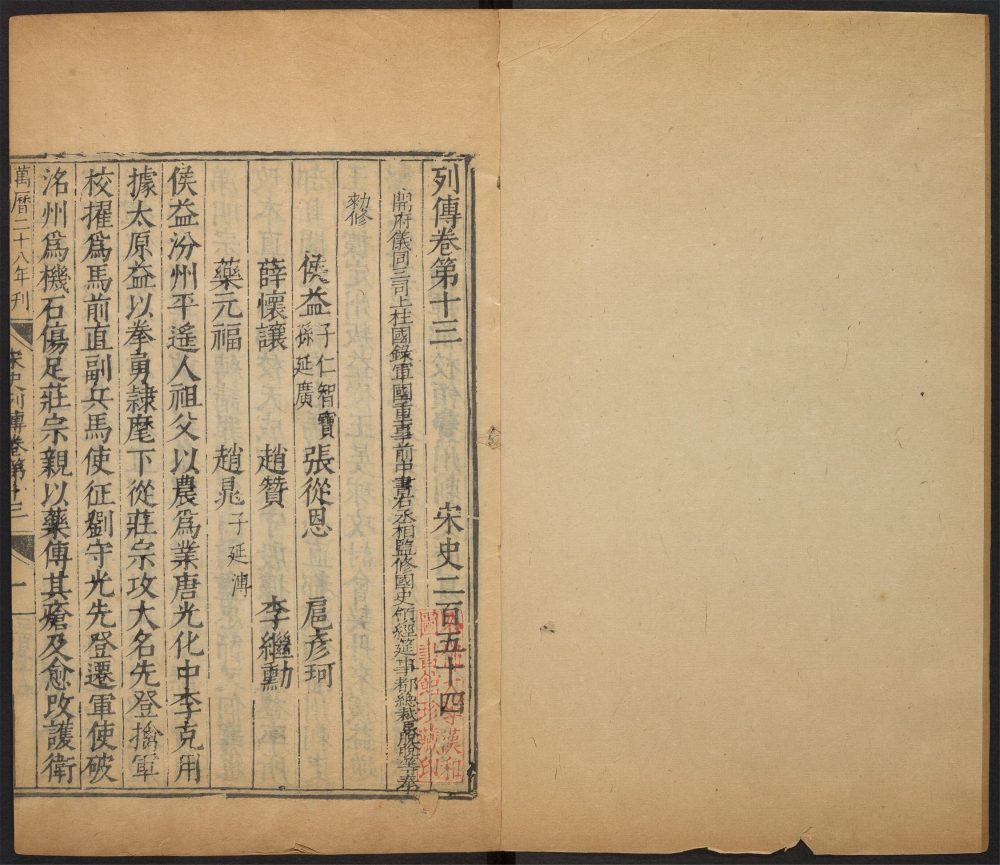 列傳卷第十三　宋史二百五十四
開府儀同三司上柱國錄軍國重事前中書右丞相監修國史領經筵事都總裁臣脫脫等奉
勑修
侯益子仁矩仁寶孫延廣　張從恩　扈彥珂
薛懷讓　趙贊　李繼勳
藥元福　趙晁子延溥
侯益汾州平遙人祖父以農爲業唐光化中李克用
據太原益以拳勇隷麾下從莊宗攻大名先登擒軍
校擢爲馬前直副兵馬使征劉守光先登遷軍使破
洺州爲機石傷足莊宗親以藥傅其瘡及愈改護衛
萬曆二十八年刊
宋史列傳卷第十三
一
漢和
圖書館珍藏印